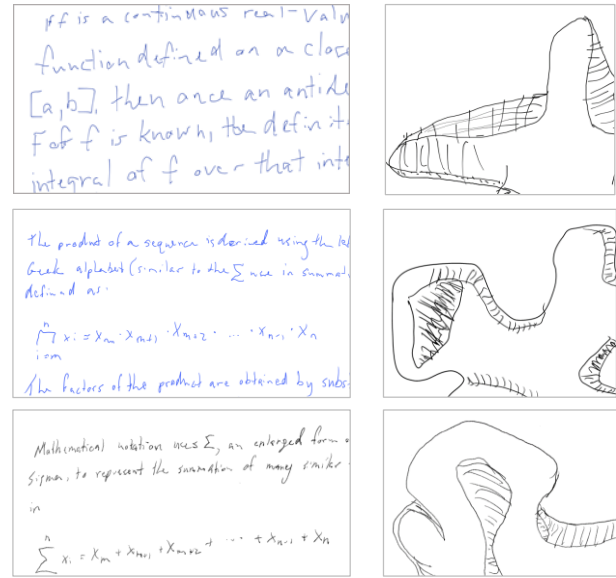 If f is a continuous real-valu
function defined on a close
[a,b], then once an antide
F of f is known, the definit
integral of f over that inte
The product of a sequence is derived using the
Greek alphabet (similar to the ∑ use in summat
defined as:
n
∏ xi = xm · xm+1 · xm+2 · ... · xn-1 · xn
i=m
The factors of the product are obtained by subs
Mathematical notation uses ∑, an enlarged form o
sigma, to represent the summation of many similar
in
n
∑ xi = xm + xm+1 + xm+2 + ... + xn-1 + xn